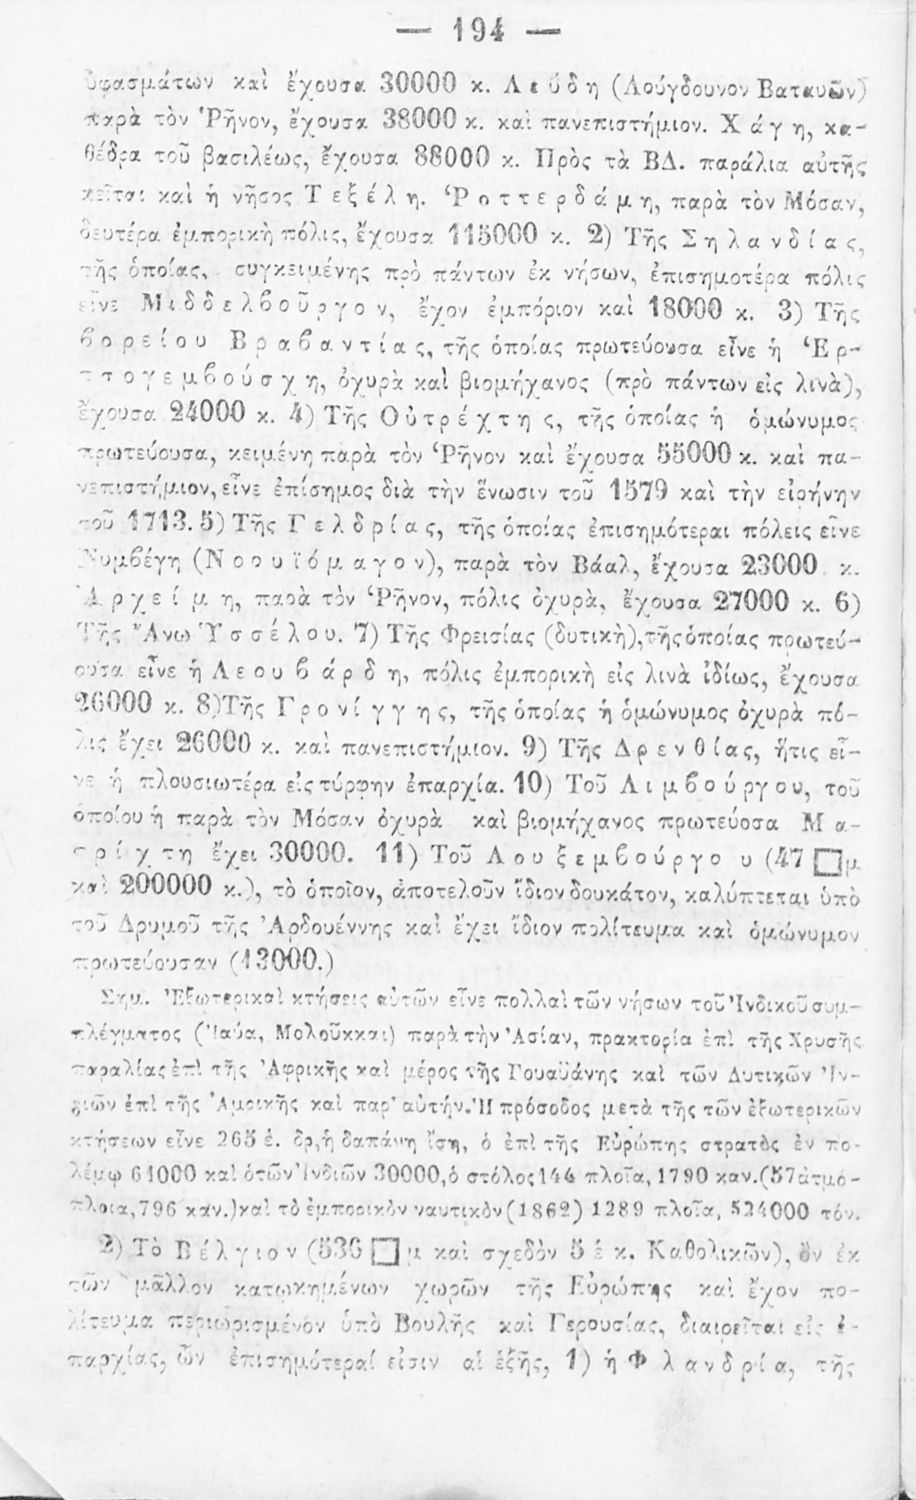 — 194 —
ὑφασμάτων καὶ ἔχουσα 30000 κ. Λεύδη (Λούγδουνον Βαταυῶν)
παρὰ τὸν Ῥῆνον, ἔχουσα 38000 κ. καὶ πανεπιστήμιον. Χάγη, κα-
θέδρα τοῦ βασιλέως, ἔχουσα 88000 κ. Πρὸς τὰ ΒΔ. παράλια αὐτῆς
κεῖται καὶ ἡ νῆσος Τεξέλη. Ῥοττερδάμη, παρὰ τὸν Μόσαν,
δευτέρα ἐμπορικὴ πόλις, ἔχουσα 115000 κ. 2) Τῆς Σηλανδίας,
τῆς ὁποίας, συγκειμένης πρὸ πάντων ἐκ νήσων, ἐπισημοτέρα πόλις
εἶνε Μιδδελβοῦργον, ἔχον ἐμπόριον καὶ 18000 κ. 3) Τῆς
βορείου Βραβαντίας, τῆς ὁποίας πρωτεύουσα εἶνε ἡ Ἑρ-
τσογεμβούσχη, ὀχυρὰ καὶ βιομήχανος (πρὸ πάντων εἰς λινὰ),
ἔχουσα 24000 κ. 4) Τῆς Οὐτρέχτης, τῆς ὁποίας ἡ ὁμώνυμος
πρωτεύουσα, κειμένη παρὰ τὸν Ῥῆνον καὶ ἔχουσα 55000 κ. καὶ πα-
νεπιστήμιον, εἶνε ἐπίσημος διὰ τὴν ἕνωσιν τοῦ 1579 καὶ τὴν εἰρήνην
τοῦ 1713. 5) Τῆς Γελδρίας, τῆς ὁποίας ἐπισημότεραι πόλεις εἶνε
Νυμβέγη (Νοουϊόμαγον), παρὰ τὸν Βάαλ, ἔχουσα 23000 κ.
Ἀρχείμη, παρὰ τὸν Ῥῆνον, πόλις ὀχυρὰ, ἔχουσα 27000 κ. 6)
Τῆς Ἄνω Ὑσσέλου. 7) Τῆς Φρεισίας (δυτικὴ), τῆς ὁποίας πρωτεύ-
ουσα εἶνε ἡ Λεουβάρδη, πόλις ἐμπορικὴ εἰς λινὰ ἰδίως, ἔχουσα
26000 κ. 8) Τῆς Γρονίγγης, τῆς ὁποίας ἡ ὁμώνυμος ὀχυρὰ πό-
λις ἔχει 26000 κ. καὶ πανεπιστήμιον. 9) Τῆς Δρενθίας, ἥτις εἶ-
νε ἡ πλουσιωτέρα εἰς τύρφην ἐπαρχία. 10) Τοῦ Λιμβούργου, τοῦ
ὁποίου ἡ παρὰ τὸν Μόσαν ὀχυρὰ καὶ βιομήχανος πρωτεύοσα Μα-
στρίχτη ἔχει 30000. 11) Τοῦ Λουξεμβούργου (47 □ μ
καὶ 200000 κ.), τὸ ὁποῖον, ἀποτελοῦν ἴδιον δουκάτον, καλύπτεται ὑπὸ
τοῦ Δρυμοῦ τῆς Ἀρδουέννης καὶ ἔχει ἴδιον πολίτευμα καὶ ὁμώνυμον
πρωτεύουσαν (13000.)
Σημ. Ἐξωτερικαὶ κτήσεις αὐτῶν εἶνε πολλαὶ τῶν νήσων τοῦ Ἰνδικοῦ συμ-
πλέγματος (Ἰαύα, Μολοῦκκαι) παρὰ τὴν Ἀσίαν, πρακτορία ἐπὶ τῆς Χρυσῆς
παραλίας ἐπὶ τῆς Ἀφρικῆς καὶ μέρος τῆς Γουαϋάνης καὶ τῶν Δυτικῶν Ἰν-
διῶν ἐπὶ τῆς Ἀμρικῆς καὶ παρ' αὐτήν. Ἡ πρόσοδος μετὰ τῆς τῶν ἐξωτερικῶν
κτήσεων εἶνε 265 ἑ. δρ, ἡ δαπάνη ἴση, ὁ ἐπὶ τῆς Εὐρώπης στρατὸς ἐν πο-
λέμῳ 61000 καὶ ὁ τῶν Ἰνδιῶν 30000, ὁ στόλος 144 πλοῖα, 1790 καν. (57 ἀτμό-
πλοια, 796 καν.) καὶ τὸ ἐμπορικὸν ναυτικὸν (1862) 1289 πλοῖα, 524000 τόν.
2) Τὸ Βέλγιον (536 □ μ καὶ σχεδὸν 5 ἑ κ. Καθολικῶν), ὂν ἐκ
τῶν μᾶλλον κατῳκημένων χωρῶν τῆς Εὐρώπης καὶ ἔχον πο-
λίτευμα περιωρισμένον ὑπὸ Βουλῆς καὶ Γερουσίας, διαιρεῖται εἰς ἐ-
παρχίας, ὧν ἐπισημότεραί εἰσιν αἱ ἑξῆς, 1) ἡ Φλανδρία, τῆς